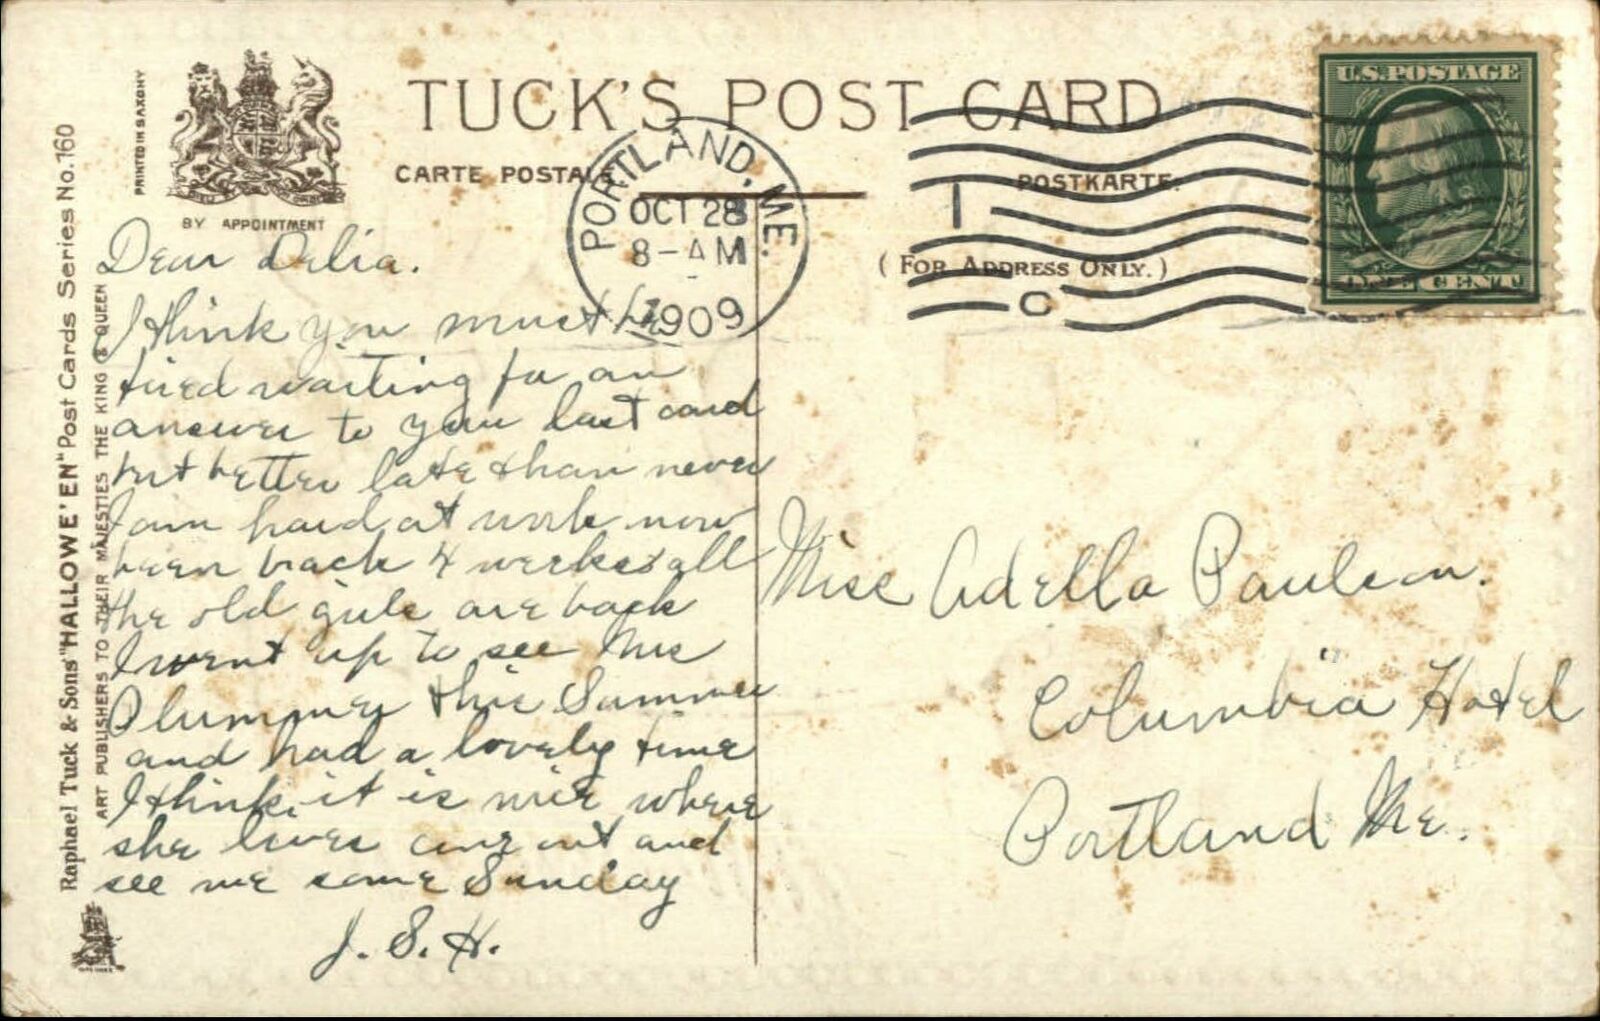 TUCK'S POST CARD
CARTE POSTALE
POSTKARTE.
(FOR ADDRESS ONLY.)
PRINTED IN SAXONY
BY APPOINTMENT
Raphael Tuck & Sons "HALLOWE'EN" Post Cards Series No. 160
ART PUBLISHERS TO THEIR MAJESTIES THE KING & QUEEN
PORTLAND, ME.
OCT 28
8-AM
1909
1
C
U.S. POSTAGE
ONE CENT
Dear Delia.
I think you must be
tired waiting for an
answer to your last card
but better late than never
I am hard at work now
been back 4 weeks & all
the old girls are back
I went up to see Mrs
Plummer this Summer
and had a lovely time
I think it is nice where
she lives come out and
see me some Sunday
J. S. H.
Miss Adella Paulson.
Columbia Hotel
Portland Me.